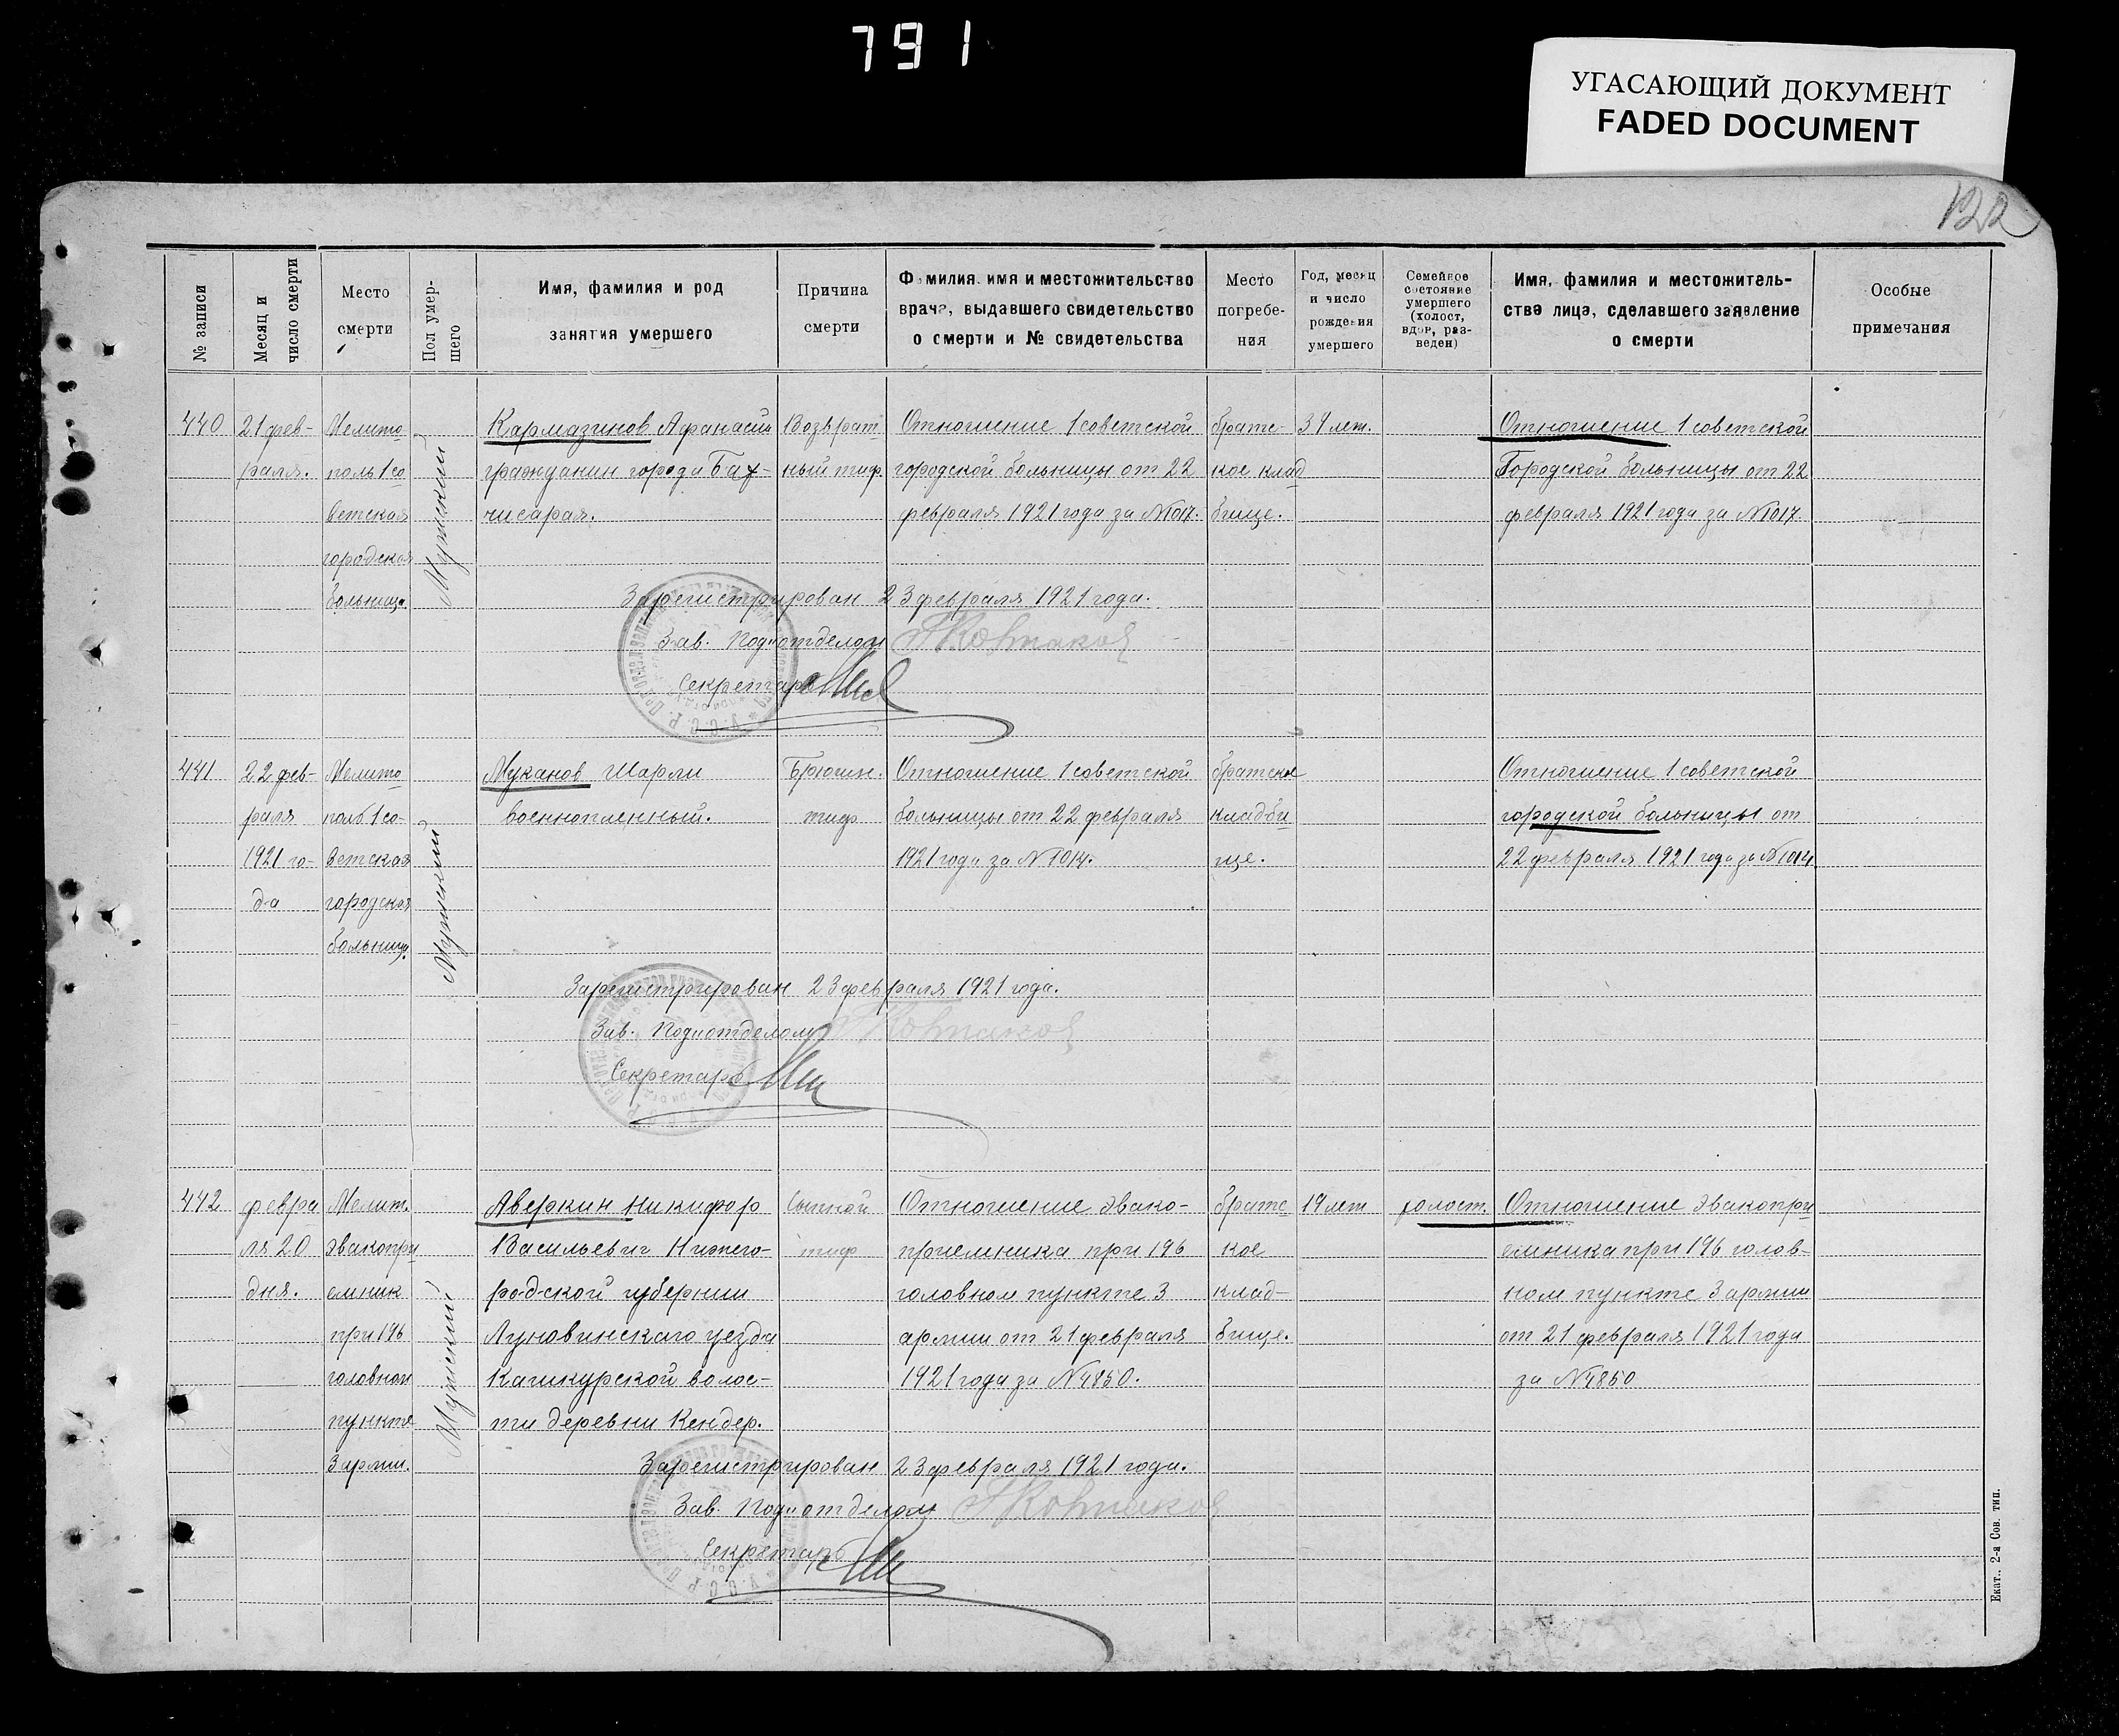 791
УГАСАЮЩИЙ ДОКУМЕНТ
FADED DOCUMENT
122
№ записи
Месяц и
число смерти
Место
смерти
Пол умер-
шего
Имя, фамилия и род
занятия умершего
Причина
смерти
Фамилия имя и местожительство
врача, выдавшего свидетельство
о смерти и № свидетельства
Место
погребе-
ния
Год, месяц
и число
рождения
умершего
Семейное
состояние
умершего
(холост,
вдов, раз-
веден)
Имя, фамилия и местожитель-
ства лица, сделавшего заявление
о смерти
Особые
примечания
440
21 фев-
раля.
Мелито
поль 1 со
ветская
городская
больница.
Мужский
Кармазинов Афанасий
гражданин города Бах-
чисарая.
Возврат
ный тиф.
Отношение 1 советской
городской больницы от 22
февраля 1921 года за №1017.
братс-
кое клад
бище.
34 лет.
Отношение 1 советской
Городской больницы от 22
февраля 1921 года за №1017.
Зарегистрирован 23 февраля 1921 года.
Зав. Подотделом
Секретарь
441
22 фев-
раля
1921 го-
да
Мелито
поль 1 со-
ветская
городская
больниц.
Мужский
Муканов Шарли
военнопленный.
Брюшн.
тиф
Отношение 1 советской
больницы от 22 февраля
1921 года за №1014.
братское
кладби
ще.
Отношение 1 советской
городской больницы от
22 февраля 1921 года за №1014
Зарегистрирован 23 февраля 1921 года.
Зав. Подотделом
Секретарь
442
февра
ля 20
дня.
Мелит.
эвакопри
емник
при 196
головном
пункте
3 армии.
Мужский
Аверкин Никифор
Васильевич Нижего-
родской губернии
Лукояновского уезда
волос-
ти деревни Кендер.
Сыпной
тиф
Отношение эвако-
приемника при 196
головном пункте 3
армии от 21 февраля
1921 года за №4850.
братс
кое
клад-
бище.
19 лет
холост.
Отношение эвакопри
емника при 196 голов-
ном пункте 3 армии
от 21 февраля 1921 года
за №4850
Зарегистрирован 23 февраля 1921 года.
Зав. Подотделом
Секретарь
Екат., 2-я Сов. тип.